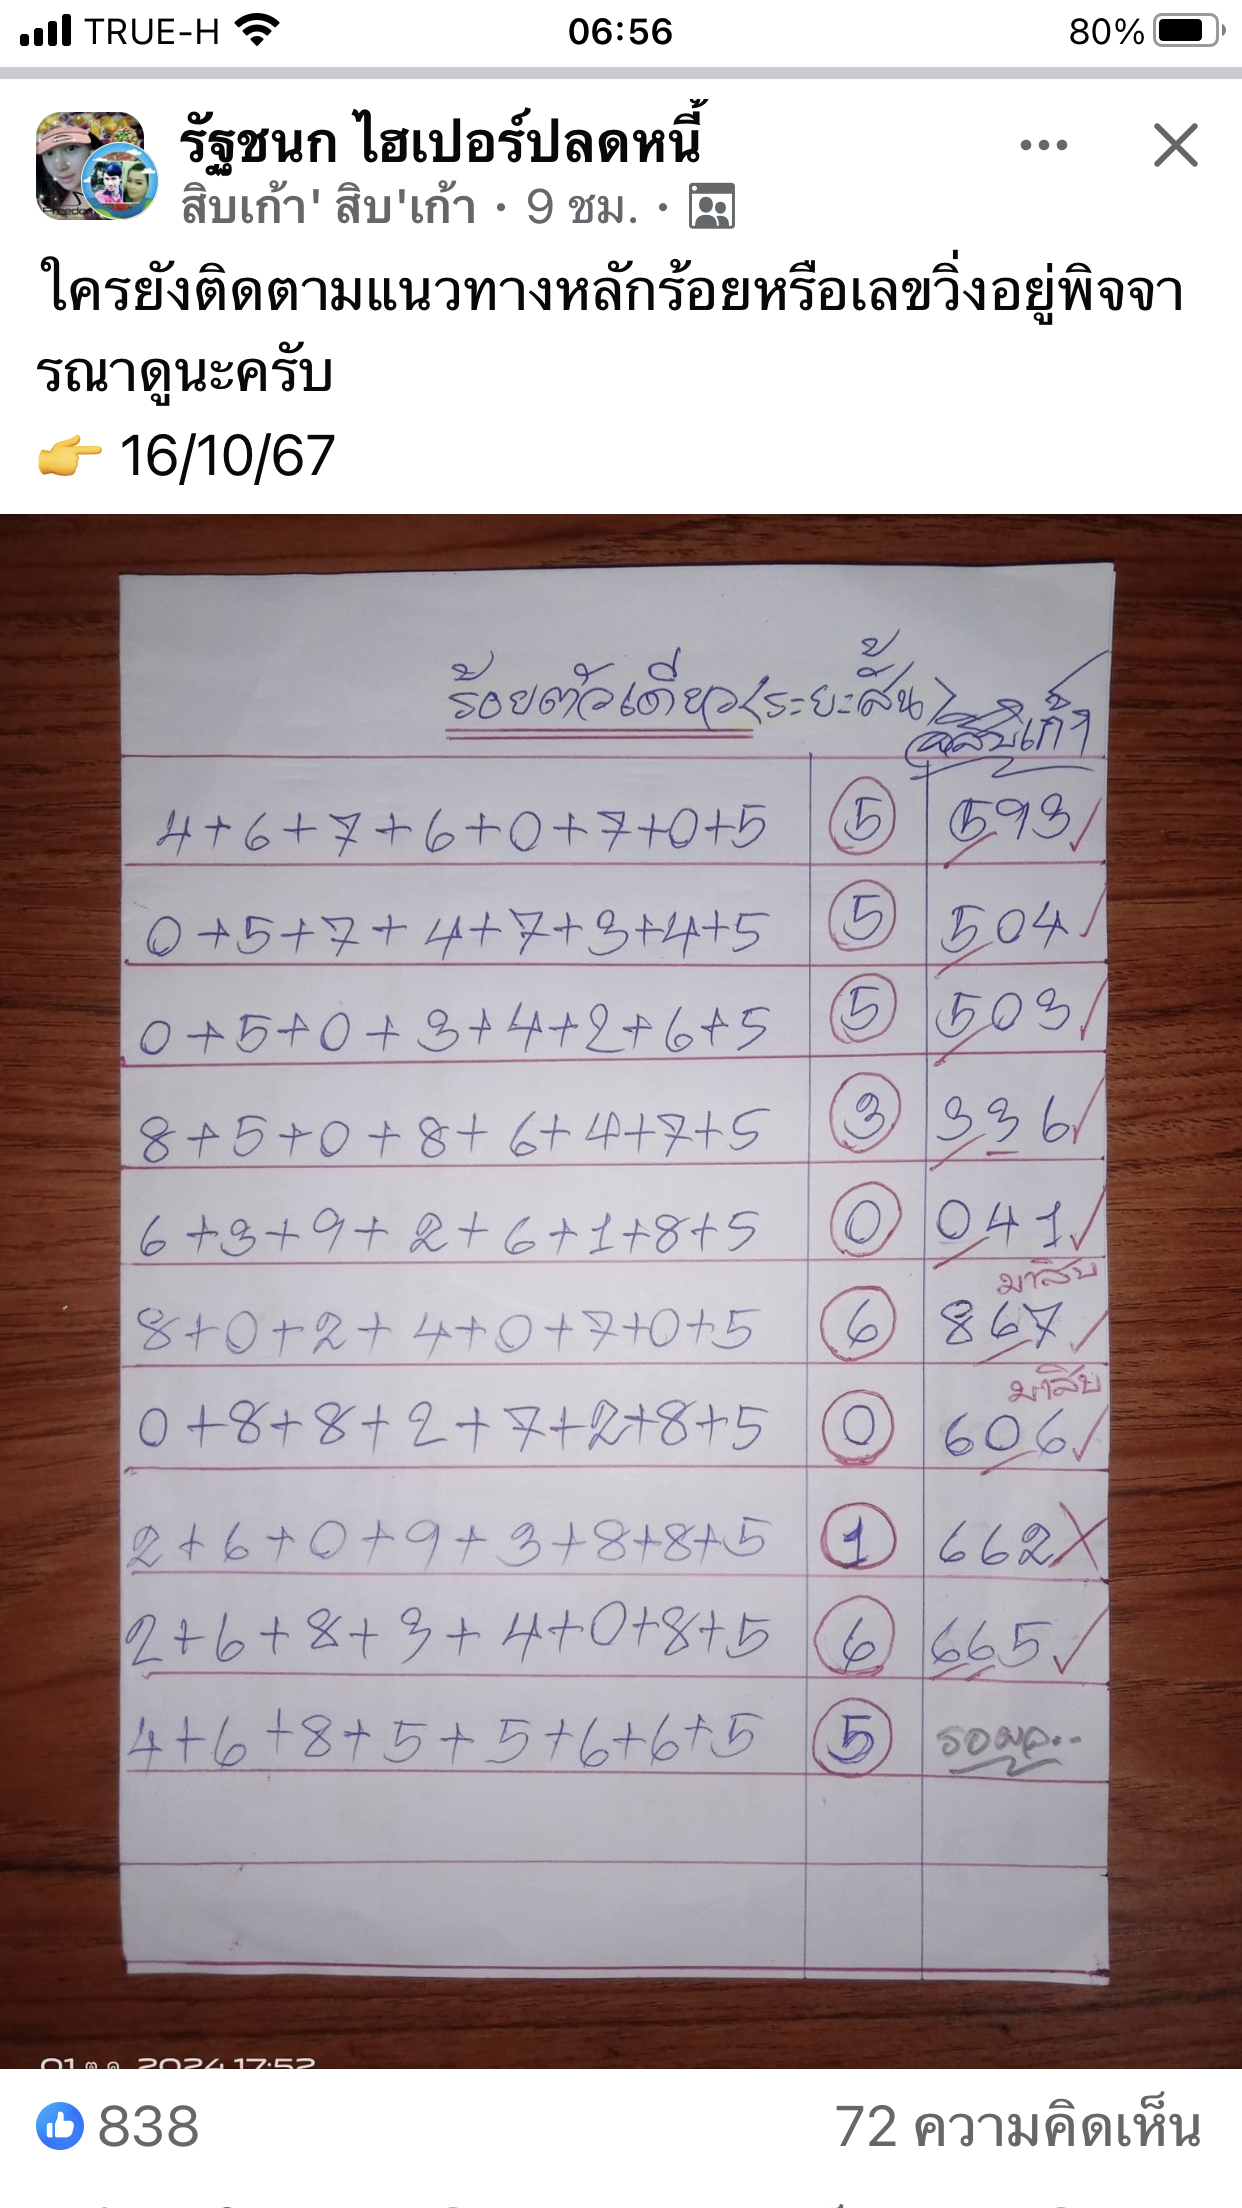 TRUE-H 06:56 80%
รัฐชนก ไฮเปอร์ปลดหนี้
สิบเก้า' สิบ'เก้า · 9 ชม. ·
ใครยังติดตามแนวทางหลักร้อยหรือเลขวิ่งอยู่พิจจา
รณาดูนะครับ
👉 16/10/67
ร้อยตัวเดียว<ระยะสั้น>
สิบเก้า
4+6+7+6+0+7+0+5 5 593
0+5+7+4+7+3+4+5 5 504
0+5+0+3+4+2+6+5 5 503
8+5+0+8+6+4+7+5 3 336
6+3+9+2+6+1+8+5 0 041
มาสิบ
8+0+2+4+0+7+0+5 6 867
มาสิบ
0+8+8+2+7+2+8+5 0 606
2+6+0+9+3+8+8+5 1 662
2+6+8+3+4+0+8+5 6 665
4+6+8+5+5+6+6+5 5 รอผล..
01 ต.ค. 2024 17:52
838 72 ความคิดเห็น